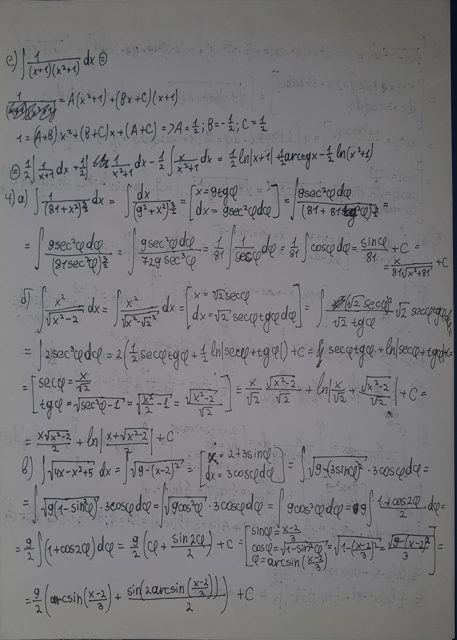 с) ∫ 1/((x+1)(x²+1)) dx ⊜
1/ = A(x²+1)+(Bx+C)(x+1)
1 = (A+B)x²+(B+C)x+(A+C) => A=1/2; B=-1/2; C=1/2
⊜ 1/2 ∫ 1/(x+1) dx + 1/2 ∫ 1/(x²+1) dx - 1/2 ∫ x/(x²+1) dx = 1/2 ln|x+1| + 1/2 arctgx - 1/2 ln(x²+1)
4) а) ∫ 1/(81+x²)^(3/2) dx = ∫ dx/(9²+x²)^(3/2) = [x=9tgφ; dx=9sec²φdφ] = ∫ 9sec²φdφ/(81+81tg²φ)^(3/2) =
= ∫ 9sec²φdφ/(81sec²φ)^(3/2) = ∫ 9sec²φdφ/(729sec³φ) = 1/81 ∫ 1/secφ dφ = 1/81 ∫ cosφdφ = sinφ/81 + C = x/(81√(x²+81)) + C
б) ∫ x²/√(x²-2) dx = ∫ x²/√(x²-√2²) dx = [x=√2secφ; dx=√2secφtgφdφ] = ∫ (√2secφ)²/(√2tgφ) √2secφtgφdφ
= ∫2sec³φdφ = 2(1/2 secφtgφ + 1/2 ln|secφ+tgφ|) + C = secφtgφ + ln|secφ+tgφ|+C=
= [secφ = x/√2; tgφ = √(sec²φ-1) = √(x²/2-1) = √(x²-2)/√2] = x/√2 √(x²-2)/√2 + ln|x/√2 + √(x²-2)/√2| + C =
= x√(x²-2)/2 + ln|x+√(x²-2)| + C
в) ∫√(4x-x²+5) dx = ∫√(9-(x-2)²) = [x=2+3sinφ; dx=3cosφdφ] = ∫√(9-(3sinφ)²)·3cosφdφ =
= ∫√(9(1-sin²φ))·3cosφdφ = ∫√(9cos²φ)·3cosφdφ = ∫9cos²φdφ = 9∫ (1+cos2φ)/2 dφ =
= 9/2 ∫(1+cos2φ)dφ = 9/2 (φ + sin2φ/2) + C = [sinφ = (x-2)/3; cosφ = √(1-sin²φ) = √(1-((x-2)/3)²) = √(9-(x-2)²)/3; φ = arcsin((x-2)/3)] =
= 9/2 (arcsin((x-2)/3) + sin(2arcsin((x-2)/3))/2) + C